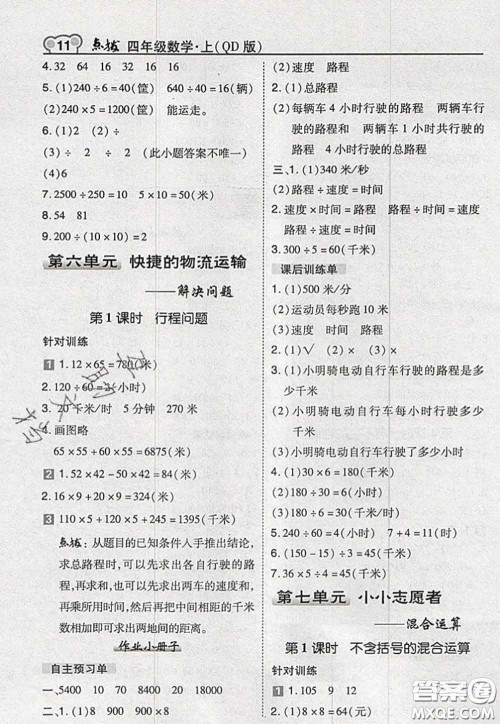 11 点拨 四年级数学·上(QD版)
4. 32 64 32 16 16
5. (1)240÷6=40(筐) 640÷40=16(辆)
(2)240×5=1200(筐) 能运走。
6. (1)2 (2)÷
(3)÷ 2 ÷ 2 (此小题答案不唯一)
(4)6
7. 2500÷250=10 5×10=50(米)
8. 54 81
9. 200÷(10÷2)=40
第六单元 快捷的物流运输
——解决问题
第1课时 行程问题
针对训练
1 1. 12×65=780(米)
2. 120÷60=2(小时)
3. 20千米/时 5分钟 270米
4. 画图略
65×55+60×55=6875(米)
2 1. 52×42-50×42=84(米)
2. 16×9+20×9=324(米)
3 110×5+120×5+245=1395(千米)
点拨:从题目的已知条件入手推出结论,
求总路程,可以先求出各自行驶的路
程,再求和,也可以先求出两车的速度和,
再乘所用时间,然后再加上相距的千米
数相加可求出两地间的距离。
作业小册子
自主预习单
一、5400 10 7800 20 16800 40
二、1. (1)8×8=64(元)
(2)速度 路程
2. (1)总路程
(2)每辆车4小时行驶的路程 两辆车行
驶的路程和 两辆车1小时共行驶的路
程 4小时行驶的总路程
三、1. (1)340米/秒
(2)路程÷速度=时间
2. 速度×时间=路程 路程÷速度=时间
路程÷时间=速度
3. 300÷5=60(千米)
课后训练单
1. (1)50米/分
(2)运动员每秒跑10米
2. (1)速度 (2)时间 (3)路程
3. (1)√ (2)× (3)×
4. (1)小明骑电动自行车行驶的路程是多
少千米
(2)小明骑电动自行车每小时行驶多少
千米
(3)小明骑电动自行车行驶了多少小时
5. (1)30×6=180(千米)
(2)180÷30=6(小时)
(3)180÷6=30(千米)
6. 240÷60=4(小时) 7>4 能
7. (1)(155+145)×6=1800(千米)
(2)(155-145)×6=60(千米)
8. 36×5÷4=45(千米)
第七单元 小小志愿者
——混合运算
第1课时 不含括号的混合运算
针对训练
1 1. 105 9 12
2. (1)50 16 8
答案圈
MXQE.COM